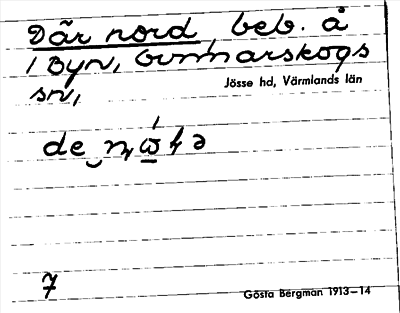 Där nord, beb. å
i Byn, Gunnarskogs
sn,
Jösse hd, Värmlands län
7
Gösta Bergman 1913–14